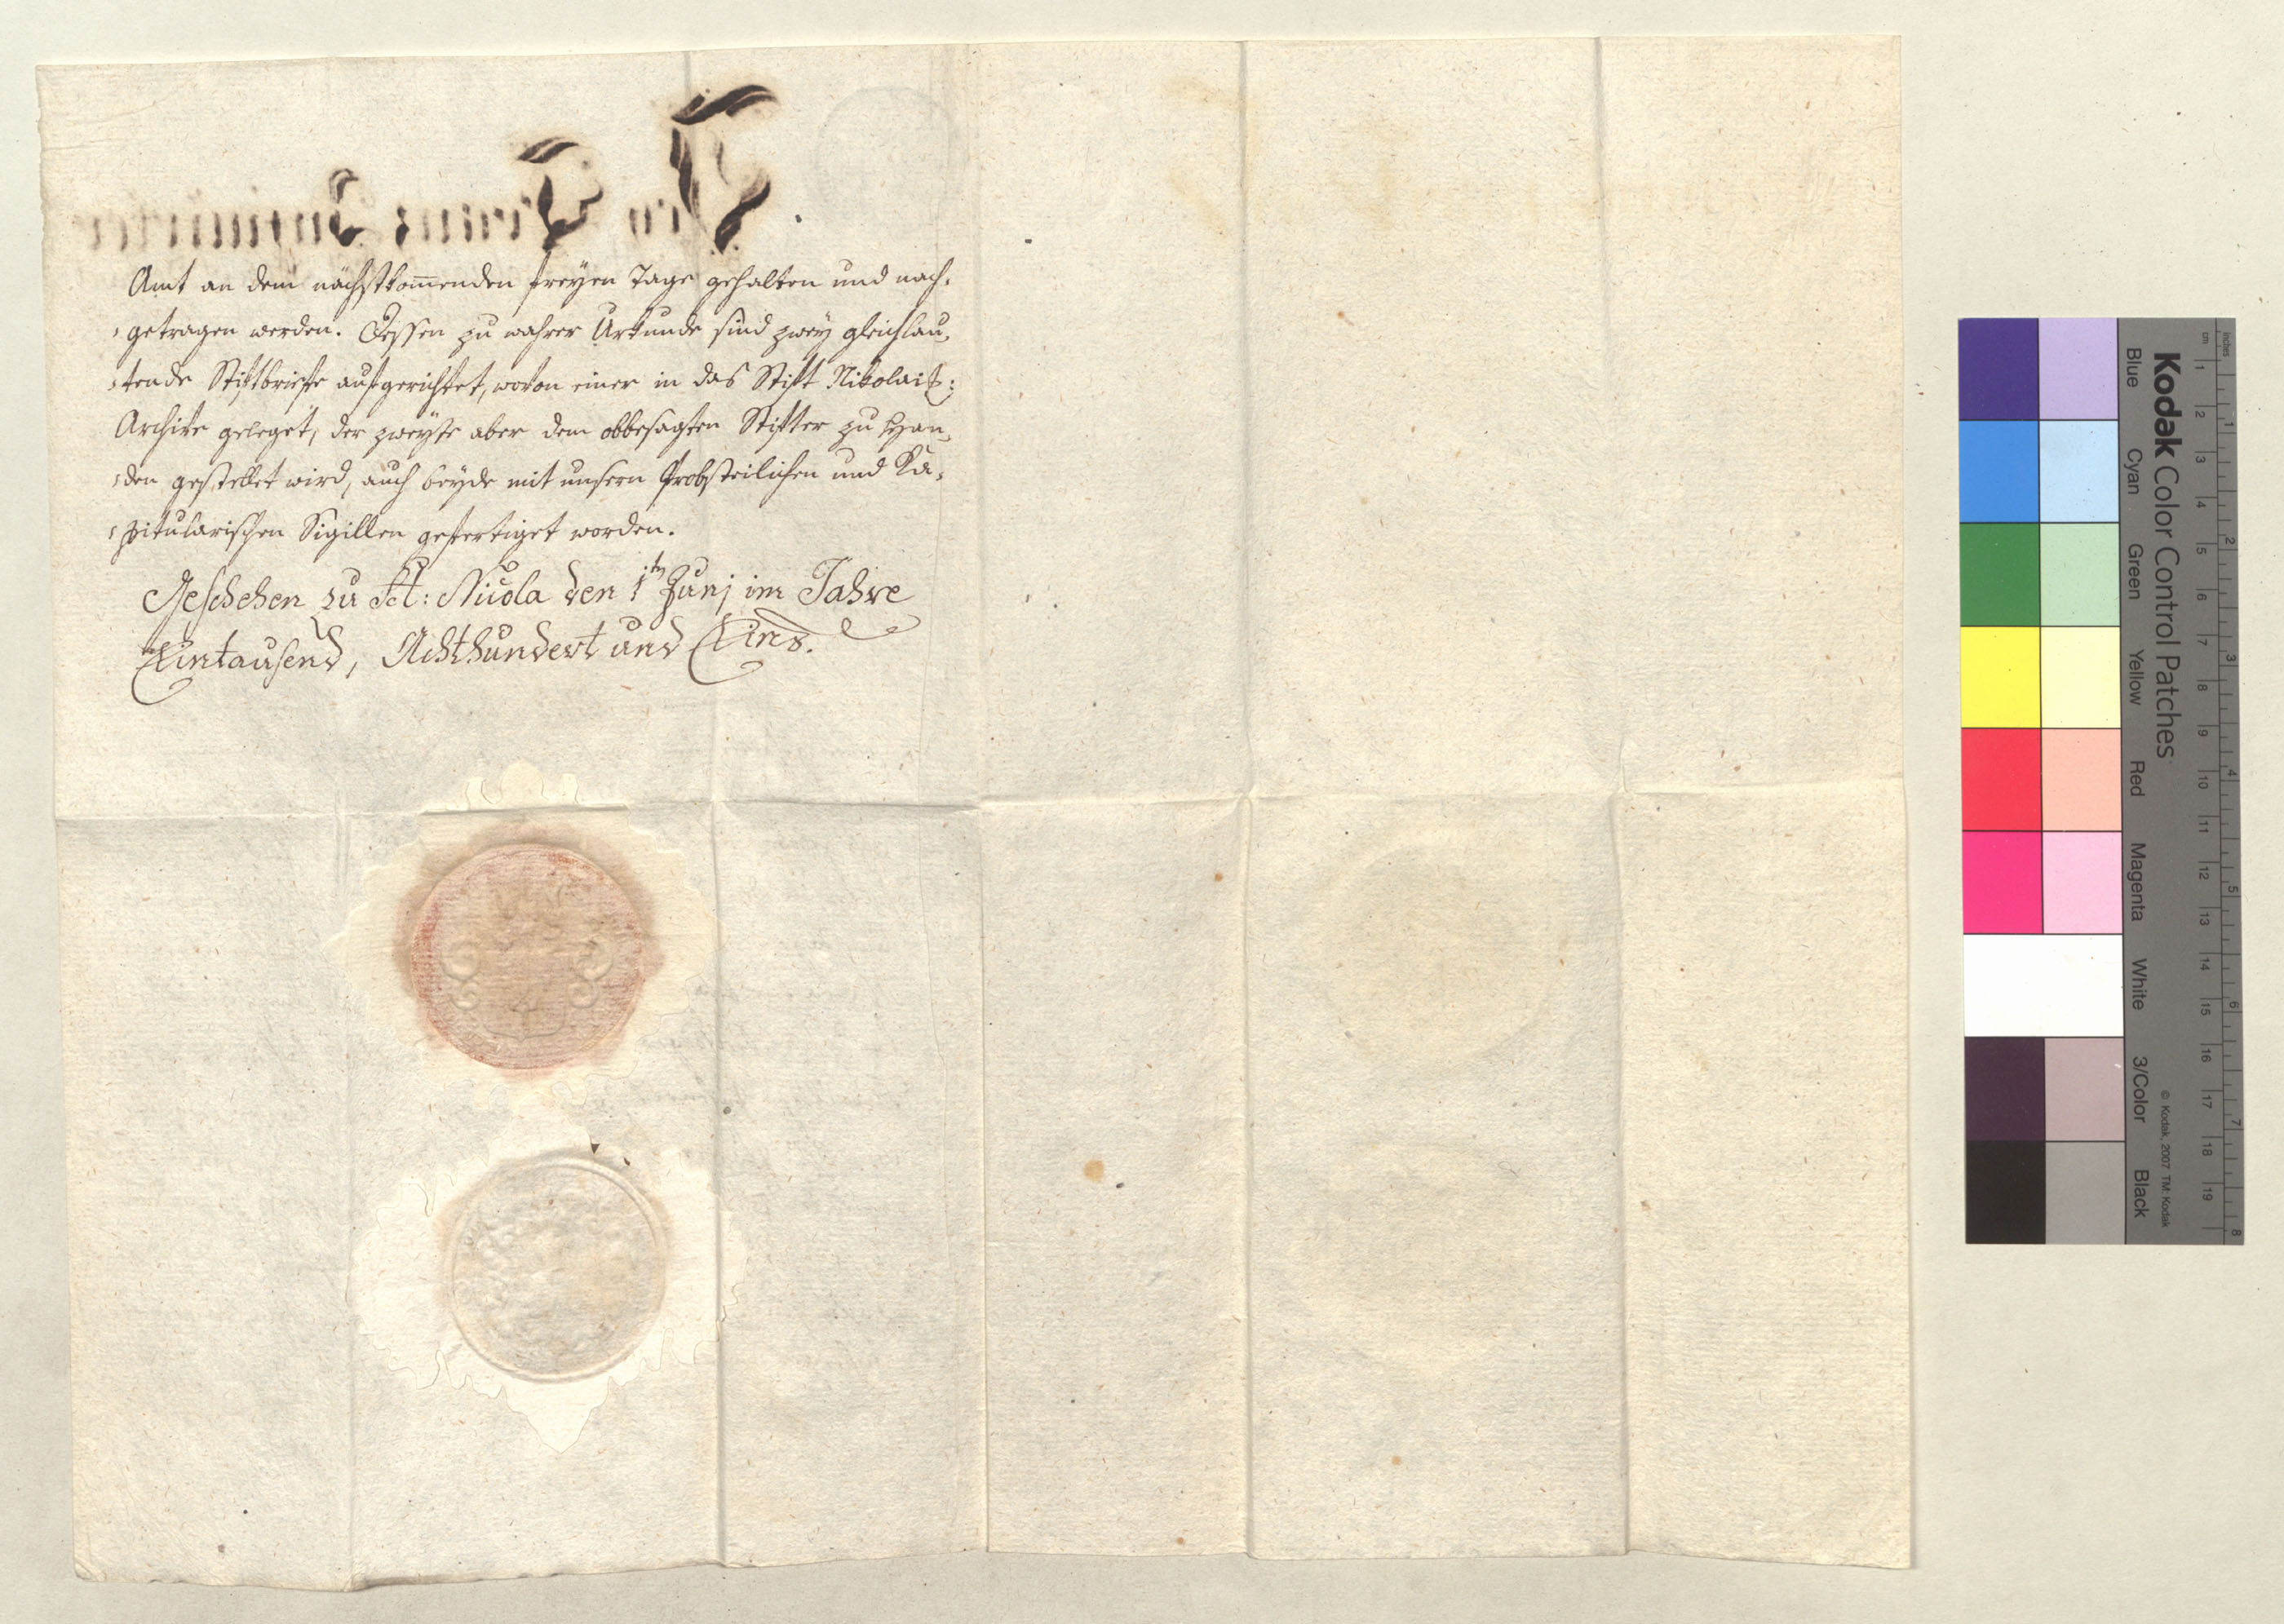 Amt an dem nächstkom̅enden freÿen Tage gehalten und nach-
-getragen werden. Dessen zu wahrer Urkunde sind zweÿ gleichlau-
-tende Stiftbriefe aufgerichtet, wovon einer in das Stift Nikolais:
Archive geleget, der zweÿte aber dem obbesagten Stifter zu Han-
-den gestellet wird, auch beÿde mit unsern Probsteilichen und Ka-
-pitularischen Sigillen gefertiget worden.
Geschehen zu St: Nicola den 1tn Junj im Jahre
Eintausend, Achthundert und Eins.
Kodak Color Control Patches
Blue Cyan Green Yellow Red Magenta White 3/Color Black
© Kodak, 2007 TM: Kodak
cm 1 2 3 4 5 6 7 8 9 10 11 12 13 14 15 16 17 18 19
inches 1 2 3 4 5 6 7 8